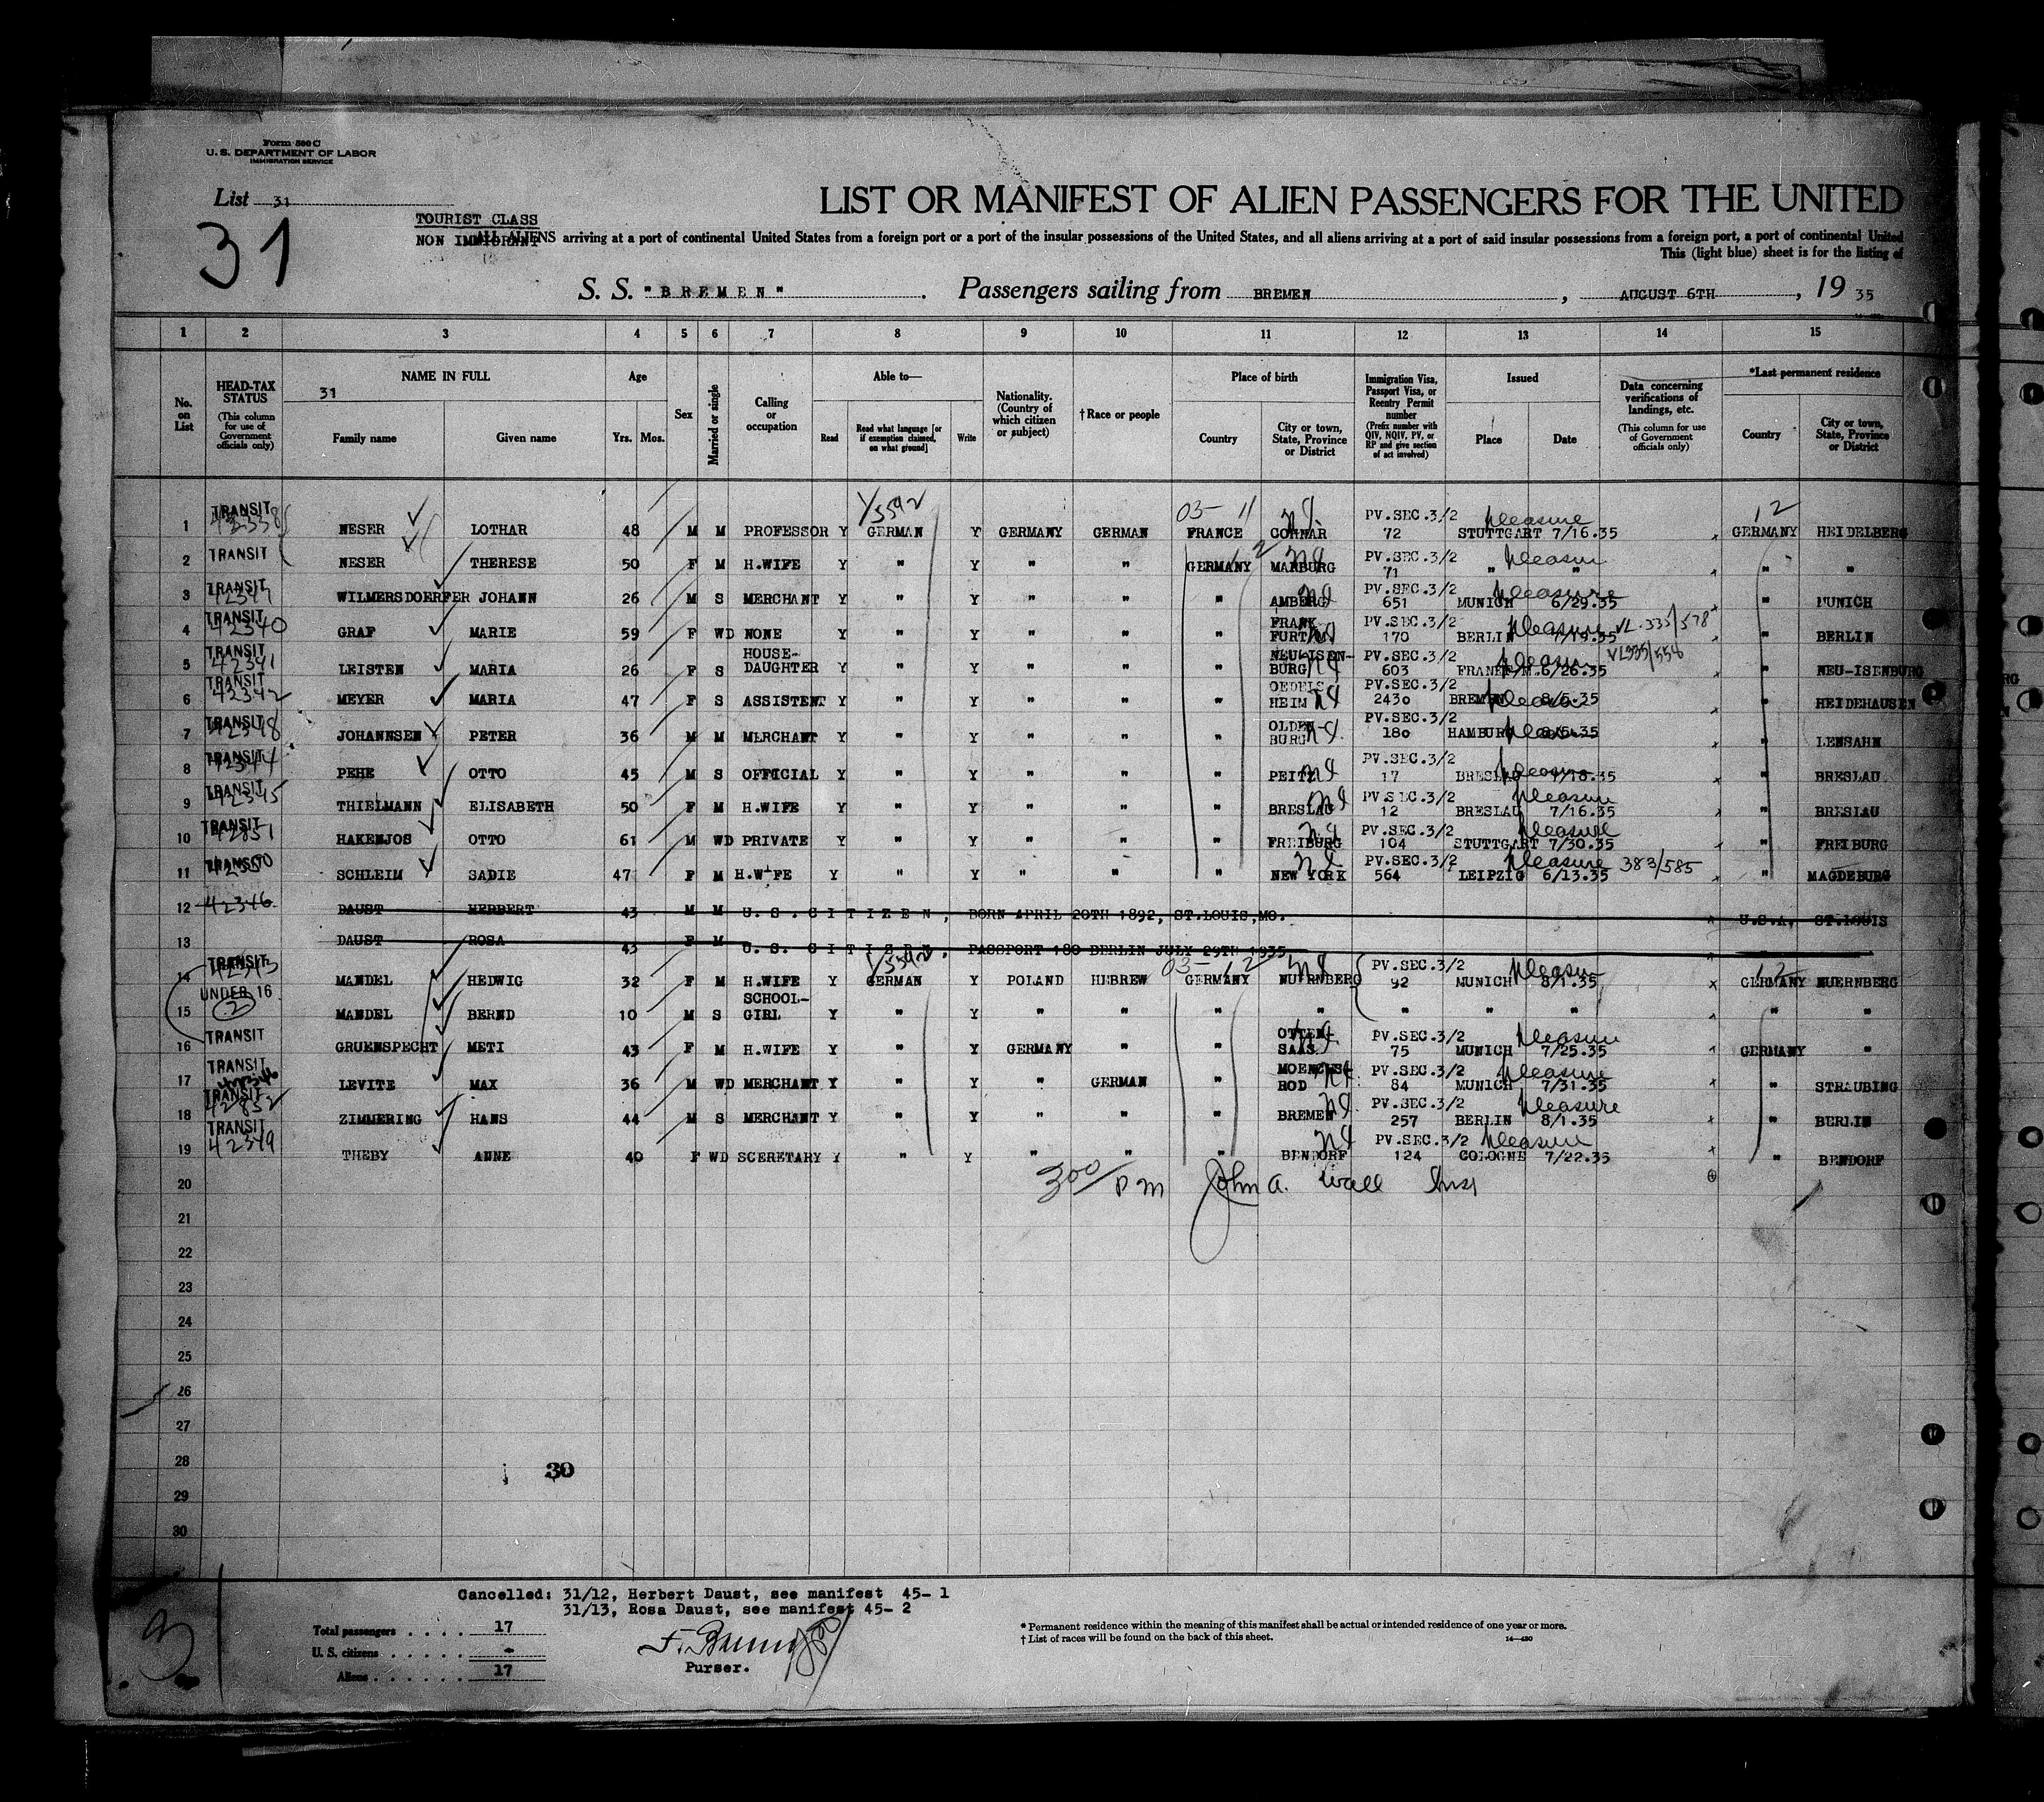 Form 500 C
U. S. DEPARTMENT OF LABOR
IMMIGRATION SERVICE
List 31
31
LIST OR MANIFEST OF ALIEN PASSENGERS FOR THE UNITED
TOURIST CLASS
NON IMMIGRANT
ALL ALIENS arriving at a port of continental United States from a foreign port or a port of the insular possessions of the United States, and all aliens arriving at a port of said insular possessions from a foreign port, a port of continental United
This (light blue) sheet is for the listing of
S. S. "BREMEN" . Passengers sailing from BREMEN , AUGUST 6TH , 19 35
1 2 3 4 5 6 7 8 9 10 11 12 13 14 15
No. on List
HEAD-TAX STATUS (This column for use of Government officials only)
NAME IN FULL
31
Family name Given name
Age
Yrs. Mos.
Sex
Married or single
Calling or occupation
Able to—
Read Read what language [or if exemption claimed, on what ground] Write
Nationality. (Country of which citizen or subject)
†Race or people
Place of birth
Country City or town, State, Province or District
Immigration Visa, Passport Visa, or Reentry Permit number (Prefix number with QIV, NQIV, PV, or RP and give section of act involved)
Issued
Place Date
Data concerning verifications of landings, etc. (This column for use of Government officials only)
*Last permanent residence
Country City or town, State, Province or District
1 TRANSIT NESER LOTHAR 48 M M PROFESSOR Y GERMAN Y GERMANY GERMAN 03- 11 FRANCE COHNAR PV.SEC.3/2 72 STUTTGART 7/16.35 pleasure 12 GERMANY HEIDELBERG
2 TRANSIT NESER THERESE 50 F M H.WIFE Y " Y " " GERMANY MARBURG PV.SEC.3/2 71 " " " "
3 TRANSIT WILMERSDOERFER JOHANN 26 M S MERCHANT Y " Y " " " AMBERG PV.SEC.3/2 651 MUNICH 6/29.35 pleasure " MUNICH
4 TRANSIT 42340 GRAF MARIE 59 F WD NONE Y " Y " " " FRANKFURT/M. PV.SEC.3/2 170 BERLIN 7/15.35 pleasure VL.335/578 " BERLIN
5 TRANSIT 42341 LEISTEN MARIA 26 F S HOUSE-DAUGHTER Y " Y " " " NEU-ISEN-BURG PV.SEC.3/2 603 FRANKF/M. 6/26.35 VL335/558 " NEU-ISENBURG
6 TRANSIT 42342 MEYER MARIA 47 F S ASSISTENT Y " Y " " " HEIM PV.SEC.3/2 2430 BREMEN 8/5.35 " HEIDEHAUSEN
7 TRANSIT 42348 JOHANNSEN PETER 36 M M MERCHANT Y " Y " " " OLDEN-BURG PV.SEC.3/2 180 HAMBURG 8/5.35 " LENSAHN
8 TRANSIT PEHE OTTO 45 M S OFFICIAL Y " Y " " " PEITZ PV.SEC.3/2 17 BRESLAU 7/18.35 " BRESLAU
9 TRANSIT 42345 THIELMANN ELISABETH 50 F M H.WIFE Y " Y " " " BRESLAU PV.SEC.3/2 12 BRESLAU 7/16.35 pleasure " BRESLAU
10 TRANSIT 42851 HAKENJOS OTTO 61 M WD PRIVATE Y " Y " " " FREIBURG PV.SEC.3/2 104 STUTTGART 7/30.35 pleasure " FREIBURG
11 TRANSIT SCHLEIM SADIE 47 F M H.WIFE Y " Y " " " NEW YORK PV.SEC.3/2 564 LEIPZIG 6/13.35 pleasure 383/585 " MAGDEBURG
12 42346 DAUST HERBERT 43 M M U.S.CITIZEN, BORN APRIL 20TH 1892, ST.LOUIS,MO. U.S.A. ST.LOUIS
13 DAUST ROSA 43 F M U.S. CITIZEN, PASSPORT 180 BERLIN JULY 29TH 1935
14 TRANSIT 42343 MANDEL HEDWIG 32 F M H.WIFE Y GERMAN Y POLAND HEBREW 03- 12 GERMANY NUERNBERG PV.SEC.3/2 92 MUNICH 8/1.35 12 GERMANY NUERNBERG
15 UNDER 16 2 MANDEL BERND 10 M S SCHOOL-GIRL Y " Y " " " " " " " " "
16 TRANSIT GRUENSPECHT METI 43 F M H.WIFE Y " Y GERMANY " " OTTEN-SAAS PV.SEC.3/2 75 MUNICH 7/25.35 pleasure GERMANY "
17 TRANSIT LEVITE MAX 36 M WD MERCHANT Y " Y " GERMAN " ROD PV.SEC.3/2 84 MUNICH 7/31.35 pleasure " STRAUBING
18 TRANSIT 42852 ZIMMERING HANS 44 M S MERCHANT Y " Y " " " BREMEN PV.SEC.3/2 257 BERLIN 8/1.35 pleasure " BERLIN
19 TRANSIT 42349 THEBY ANNE 40 F WD SCERETARY Y " Y " " " BENDORF PV.SEC.3/2 124 COLOGNE 7/22.35 pleasure " BENDORF
20 3 00/ pm John A. Wall Insp
21
22
23
24
25
26
27
28 30
29
30
Cancelled: 31/12, Herbert Daust, see manifest 45- 1
31/13, Rosa Daust, see manifest 45- 2
Total passengers . . . . 17
U. S. citizens . . . . . -
Aliens . . . . . . 17
Purser.
* Permanent residence within the meaning of this manifest shall be actual or intended residence of one year or more.
† List of races will be found on the back of this sheet.
14—480